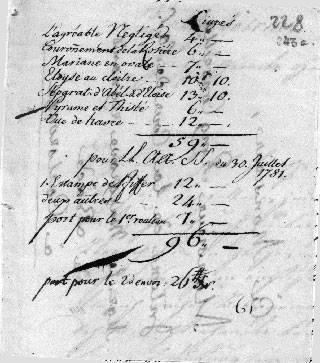 Livres
228
243c
L'agréable Negligé 4,, —
Couronement de la Rosiere 6,, —
Mariane en ovale 7,, —
Eloyse au cloitre 10,, 10.
Seporat. d'Abél. d'Eloise 13,, 10.
Pyrame et Thisbé 6,, —
Vue de havre — 12,, —
59,, —
pour LL. AA. SS. du 30. Juillet
1781.
1. Estampe de 12,, —
deux autres 24,, —
port pour le 1er rouleau 1,, —
96,, —
port pour le 2d envoi 2
61